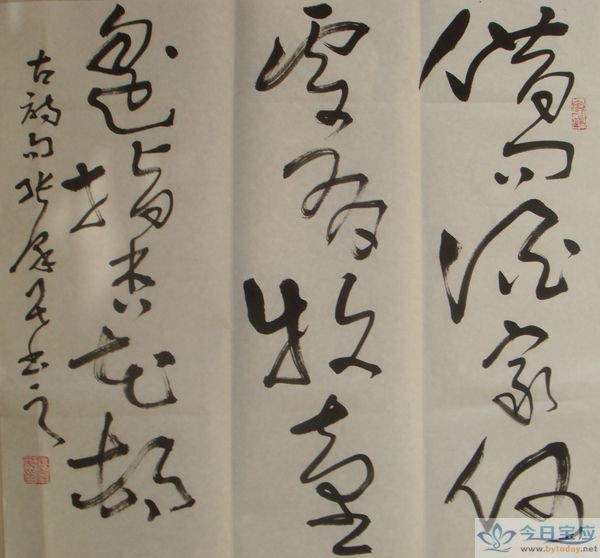 借问酒家何
處有牧童
遥指杏花村
古诗句张书之
今日宝应
www.bytoday.net